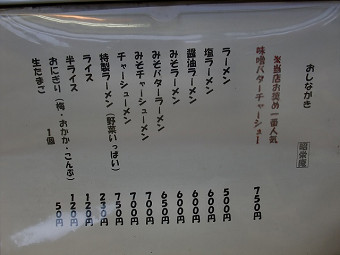 おしながき
※当店お奨め一番人気
味噌バターチャーシュー 750円
ラーメン 500円
塩ラーメン 600円
醤油ラーメン 600円
みそラーメン 600円
みそバターラーメン 650円
みそチャーシューメン 700円
チャーシューメン 700円
特製ラーメン(野菜いっぱい) 750円
ライス 230円
半ライス 120円
おにぎり(梅・おかか・こんぶ) 1個 120円
生たまご 50円